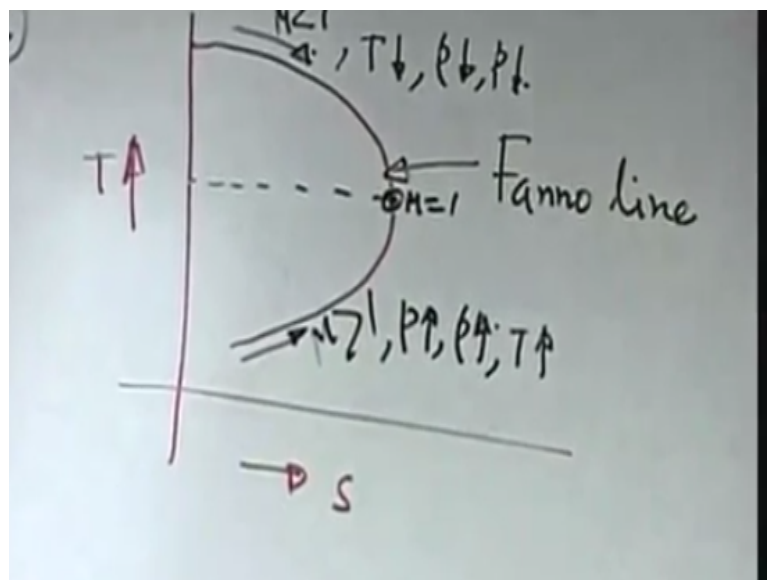 M<1
, T↓, ρ↓, p↓.
T↑
Fanno line
M=1
M>1, p↑, ρ↑, T↑
→ s